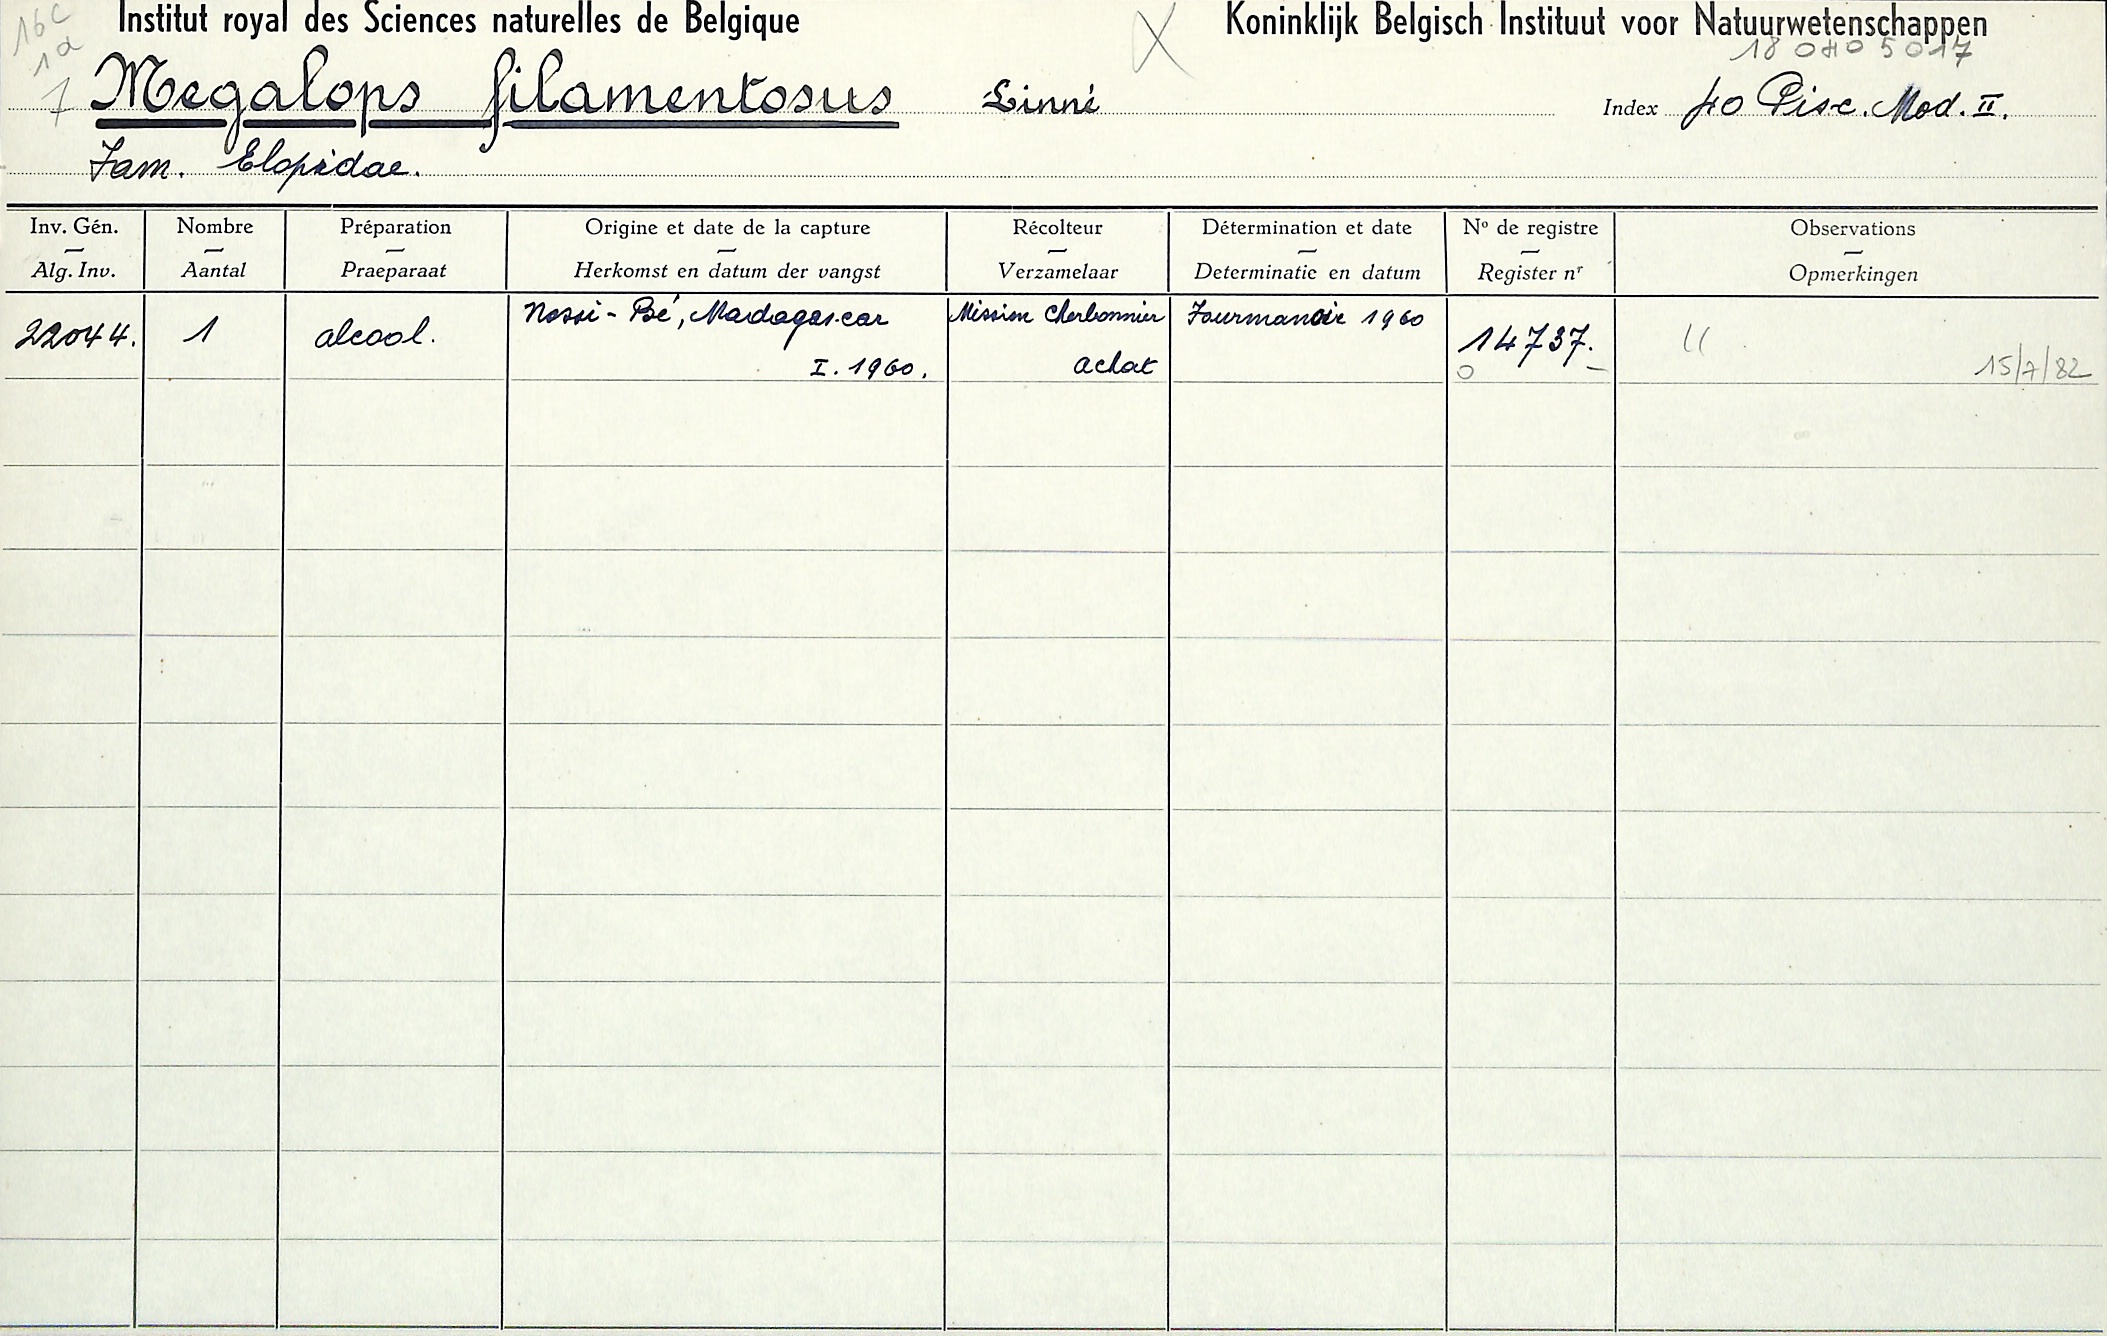 Institut royal des Sciences naturelles de Belgique
Koninklijk Belgisch Instituut voor Natuurwetenschappen
16c
1a
1
X
Megalops filamentosus Linné
Index 40 Pisc. Mod. II.
Fam. Elopidae.
Inv. Gén. Nombre Préparation Origine et date de la capture Récolteur Détermination et date Nº de registre Observations
Alg. Inv. Aantal Praeparaat Herkomst en datum der vangst Verzamelaar Determinatie en datum Register nr Opmerkingen
22044. 1 alcool. Nossi-Bé, Madagascar Mission Cherbonnier Fourmanoir 1960 14737.
I. 1960. achat 15/7/82